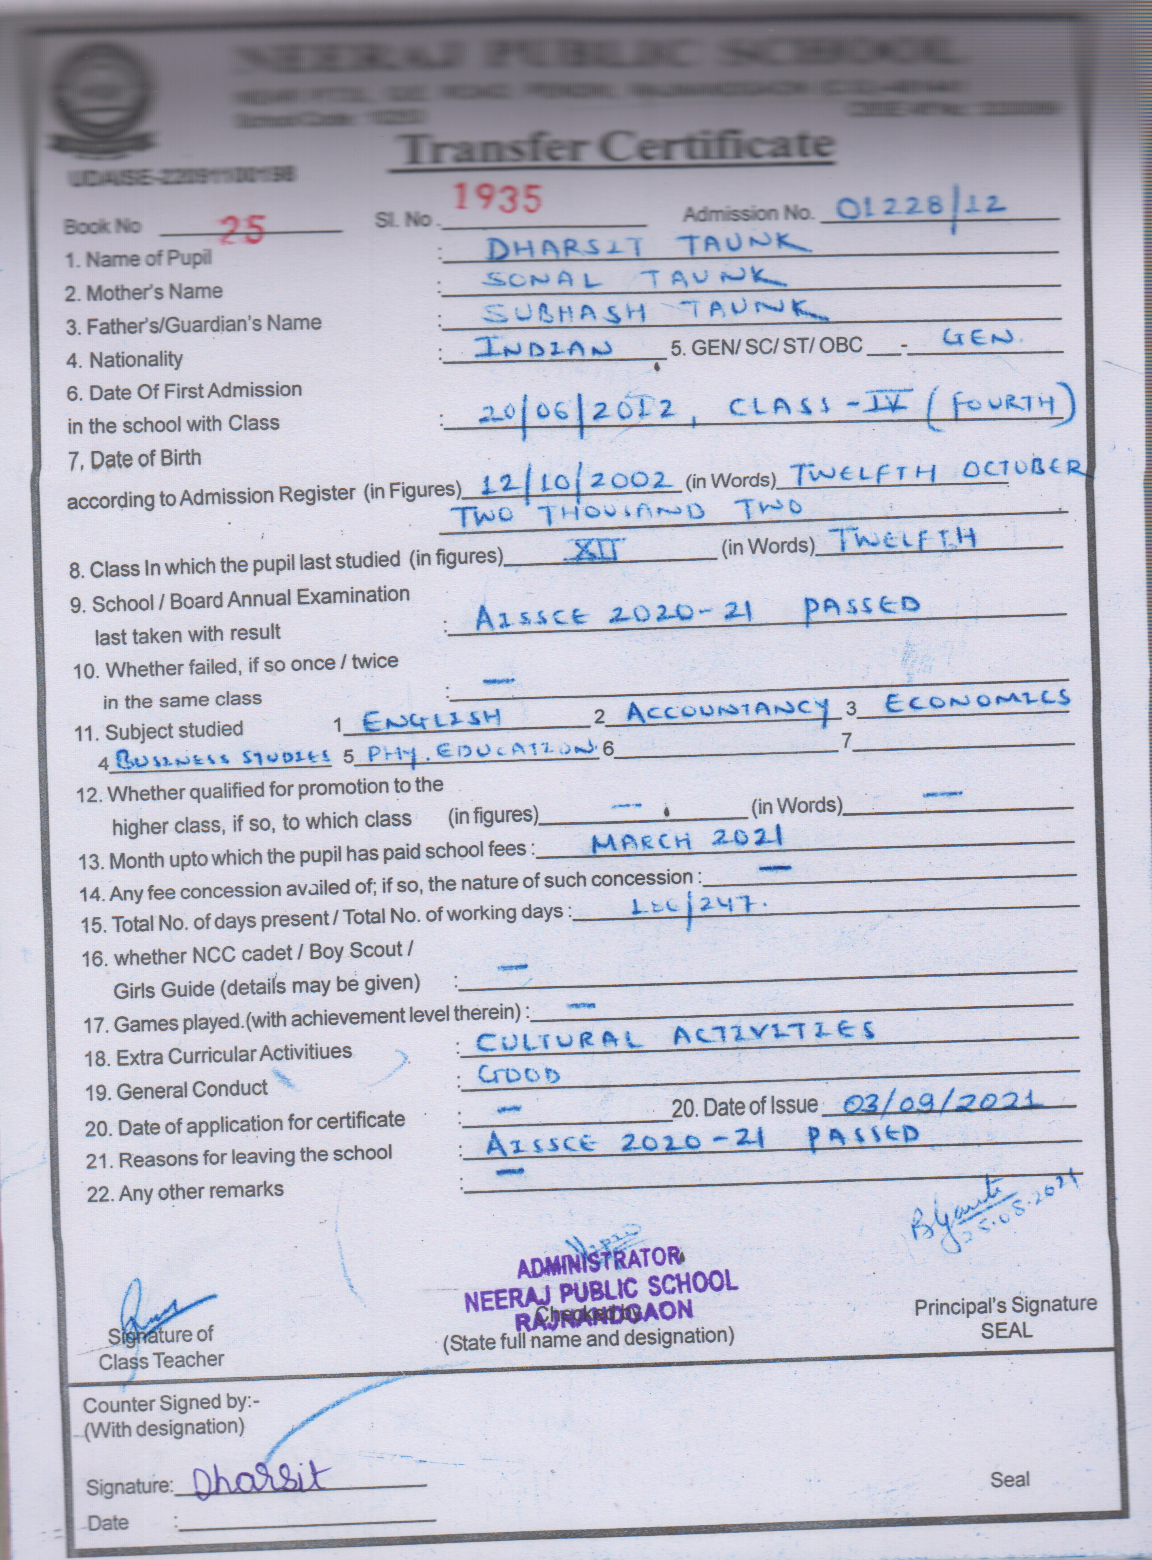 NEERAJ PUBLIC SCHOOL
School Code
Transfer Certificate
UDAISE-22091100198
Book No 25 Sl. No. 1935 Admission No. 01228/12
1. Name of Pupil : DHARSIT TAUNK
2. Mother's Name : SONAL TAUNK
3. Father's/Guardian's Name : SUBHASH TAUNK
4. Nationality : INDIAN 5. GEN/ SC/ ST/ OBC - GEN.
6. Date Of First Admission
in the school with Class : 20/06/2012, CLASS - IV (FOURTH)
7. Date of Birth
according to Admission Register (in Figures) 12/10/2002 (in Words) TWELFTH OCTOBER
TWO THOUSAND TWO
8. Class In which the pupil last studied (in figures) XII (in Words) TWELFTH
9. School / Board Annual Examination
last taken with result : AISSCE 2020-21 PASSED
10. Whether failed, if so once / twice
in the same class : —
11. Subject studied 1 ENGLISH 2 ACCOUNTANCY 3 ECONOMICS
4 BUSINESS STUDIES 5 PHY. EDUCATION 6 7
12. Whether qualified for promotion to the
higher class, if so, to which class (in figures) — (in Words) —
13. Month upto which the pupil has paid school fees : MARCH 2021
14. Any fee concession availed of; if so, the nature of such concession : —
15. Total No. of days present / Total No. of working days : /247.
16. whether NCC cadet / Boy Scout /
Girls Guide (details may be given) : —
17. Games played.(with achievement level therein) : —
18. Extra Curricular Activitiues : CULTURAL ACTIVITIES
19. General Conduct : GOOD
20. Date of application for certificate : — 20. Date of Issue 03/09/2021
21. Reasons for leaving the school : AISSCE 2020-21 PASSED
22. Any other remarks : —
25.08.2021
ADMINISTRATOR
NEERAJ PUBLIC SCHOOL
RAJNANDGAON
Checked by
(State full name and designation)
Signature of
Class Teacher
Principal's Signature
SEAL
Counter Signed by:-
(With designation)
Signature: Dharsit
Seal
Date :